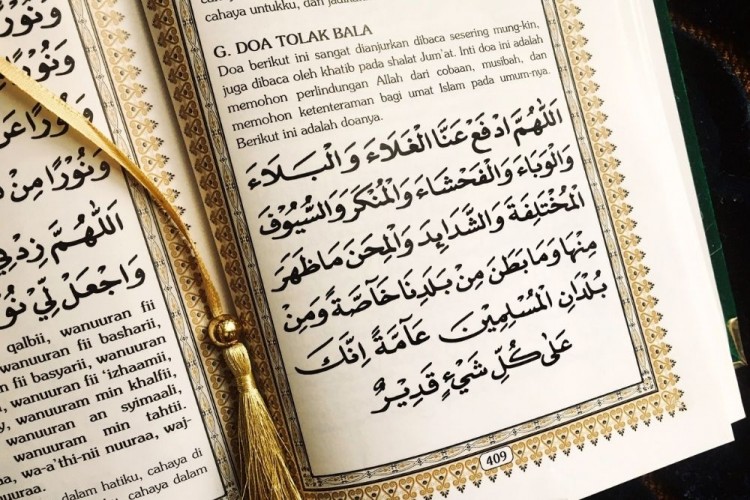 وَنُوْرًا مِنْ
اَللّٰهُمَّ زِدْنِيْ
وَاجْعَلْ لِّيْ
qalbii, wanuuran fii
wanuuran fii basharii,
fii basyarii, wanuuran
wanuuran fii 'izhaamii,
wanuuran min khalfii,
wanuuran an syimaali,
wanuuram min tahtii.
wa-a'thi-nii nuuraa, waj-
nuuraa.
dalam hatiku, cahaya di
cahaya dalam
cahaya untukku, dan
G. DOA TOLAK BALA
Doa berikut ini sangat dianjurkan dibaca sesering mung-kin,
juga dibaca oleh khatib pada shalat Jum'at. Inti doa ini adalah
memohon perlindungan Allah dari cobaan, musibah, dan
memohon ketenteraman bagi umat Islam pada umum-nya.
Berikut ini adalah doanya.
اَللّٰهُمَّ ادْفَعْ عَنَّا الْغَلَاءَ وَالْبَلَاءَ
وَالْوَبَاءَ وَالْفَحْشَاءَ وَالْمُنْكَرَ وَالسُّيُوْفَ
الْمُخْتَلِفَةَ وَالشَّدَايِدَ وَالْمِحَنَ مَاظَهَرَ
مِنْهَا وَمَا بَطَنَ مِنْ بَلَدِنَا خَآصَّةً وَمِنْ
بُلْدَانِ الْمُسْلِمِيْنَ عَآمَةً اِنَّكَ
عَلٰى كُلِّ شَيْءٍ قَدِيْرٌ
409